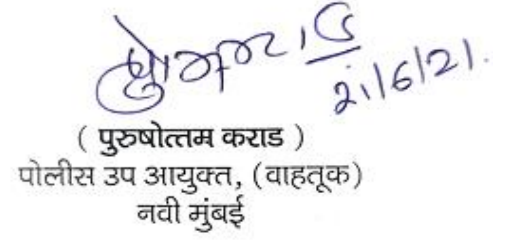 21/6/21.
( पुरुषोत्तम कराड )
पोलीस उप आयुक्त, (वाहतूक)
नवी मुंबई